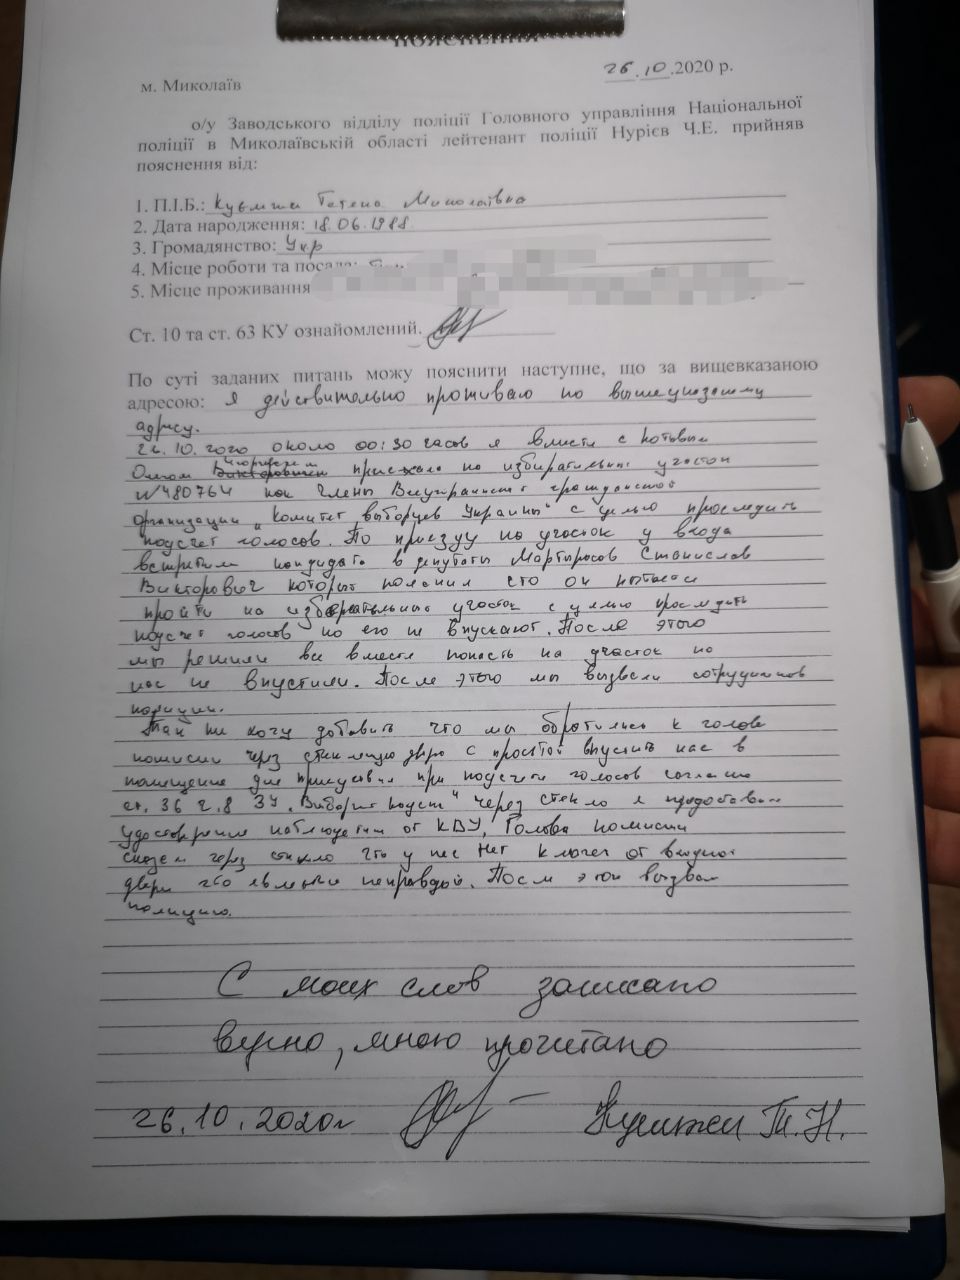 ПОЯСНЕННЯ
м. Миколаїв
26.10.2020 р.
о/у Заводського відділу поліції Головного управління Національної
поліції в Миколаївській області лейтенант поліції Нурієв Ч.Е. прийняв
пояснення від:
1. П.І.Б.: Тетяна Миколаївна
2. Дата народження: 18.06.1988
3. Громадянство: Укр
4. Місце роботи та посада:
5. Місце проживання
Ст. 10 та ст. 63 КУ ознайомлений.
По суті заданих питань можу пояснити наступне, що за вищевказаною
адресою: Я действительно проживаю по вышеуказаному
адресу.
26.10.2020 около 00:30 часов я вместе с
Олегом приехала на избирательный участок
№480764 как члены Всеукраинской гражданской
организации "Комитет выборцев Украины" с целью проследить
подсчет голосов. По приезду на участок у входа
встретили кандидата в депутаты Мартиросов Станислав
Викторович который пояснил что он пытался
пройти на избирательный участок с целью проследить
подсчет голосов но его не впускают. После этого
мы решили все вместе попасть на участок но
нас не впустили. После этого мы вызвали сотрудников
полиции.
Так же хочу добавить что мы обратились к голове
комисии через стеклянную дверь с просьбой впустить нас в
помещение для присуствия при подсчете голосов согласно
ст. 36 ч. 8 ЗУ. через стекло я предоставила
удостоверение наблюдателя от КВУ, Голова комисии
сказал через стекло что у нее нет ключей от входной
двери что является неправдой. После этого вызвали
полицию.
С моих слов записано
верно, мною прочитано
26.10.2020г Т.Н.